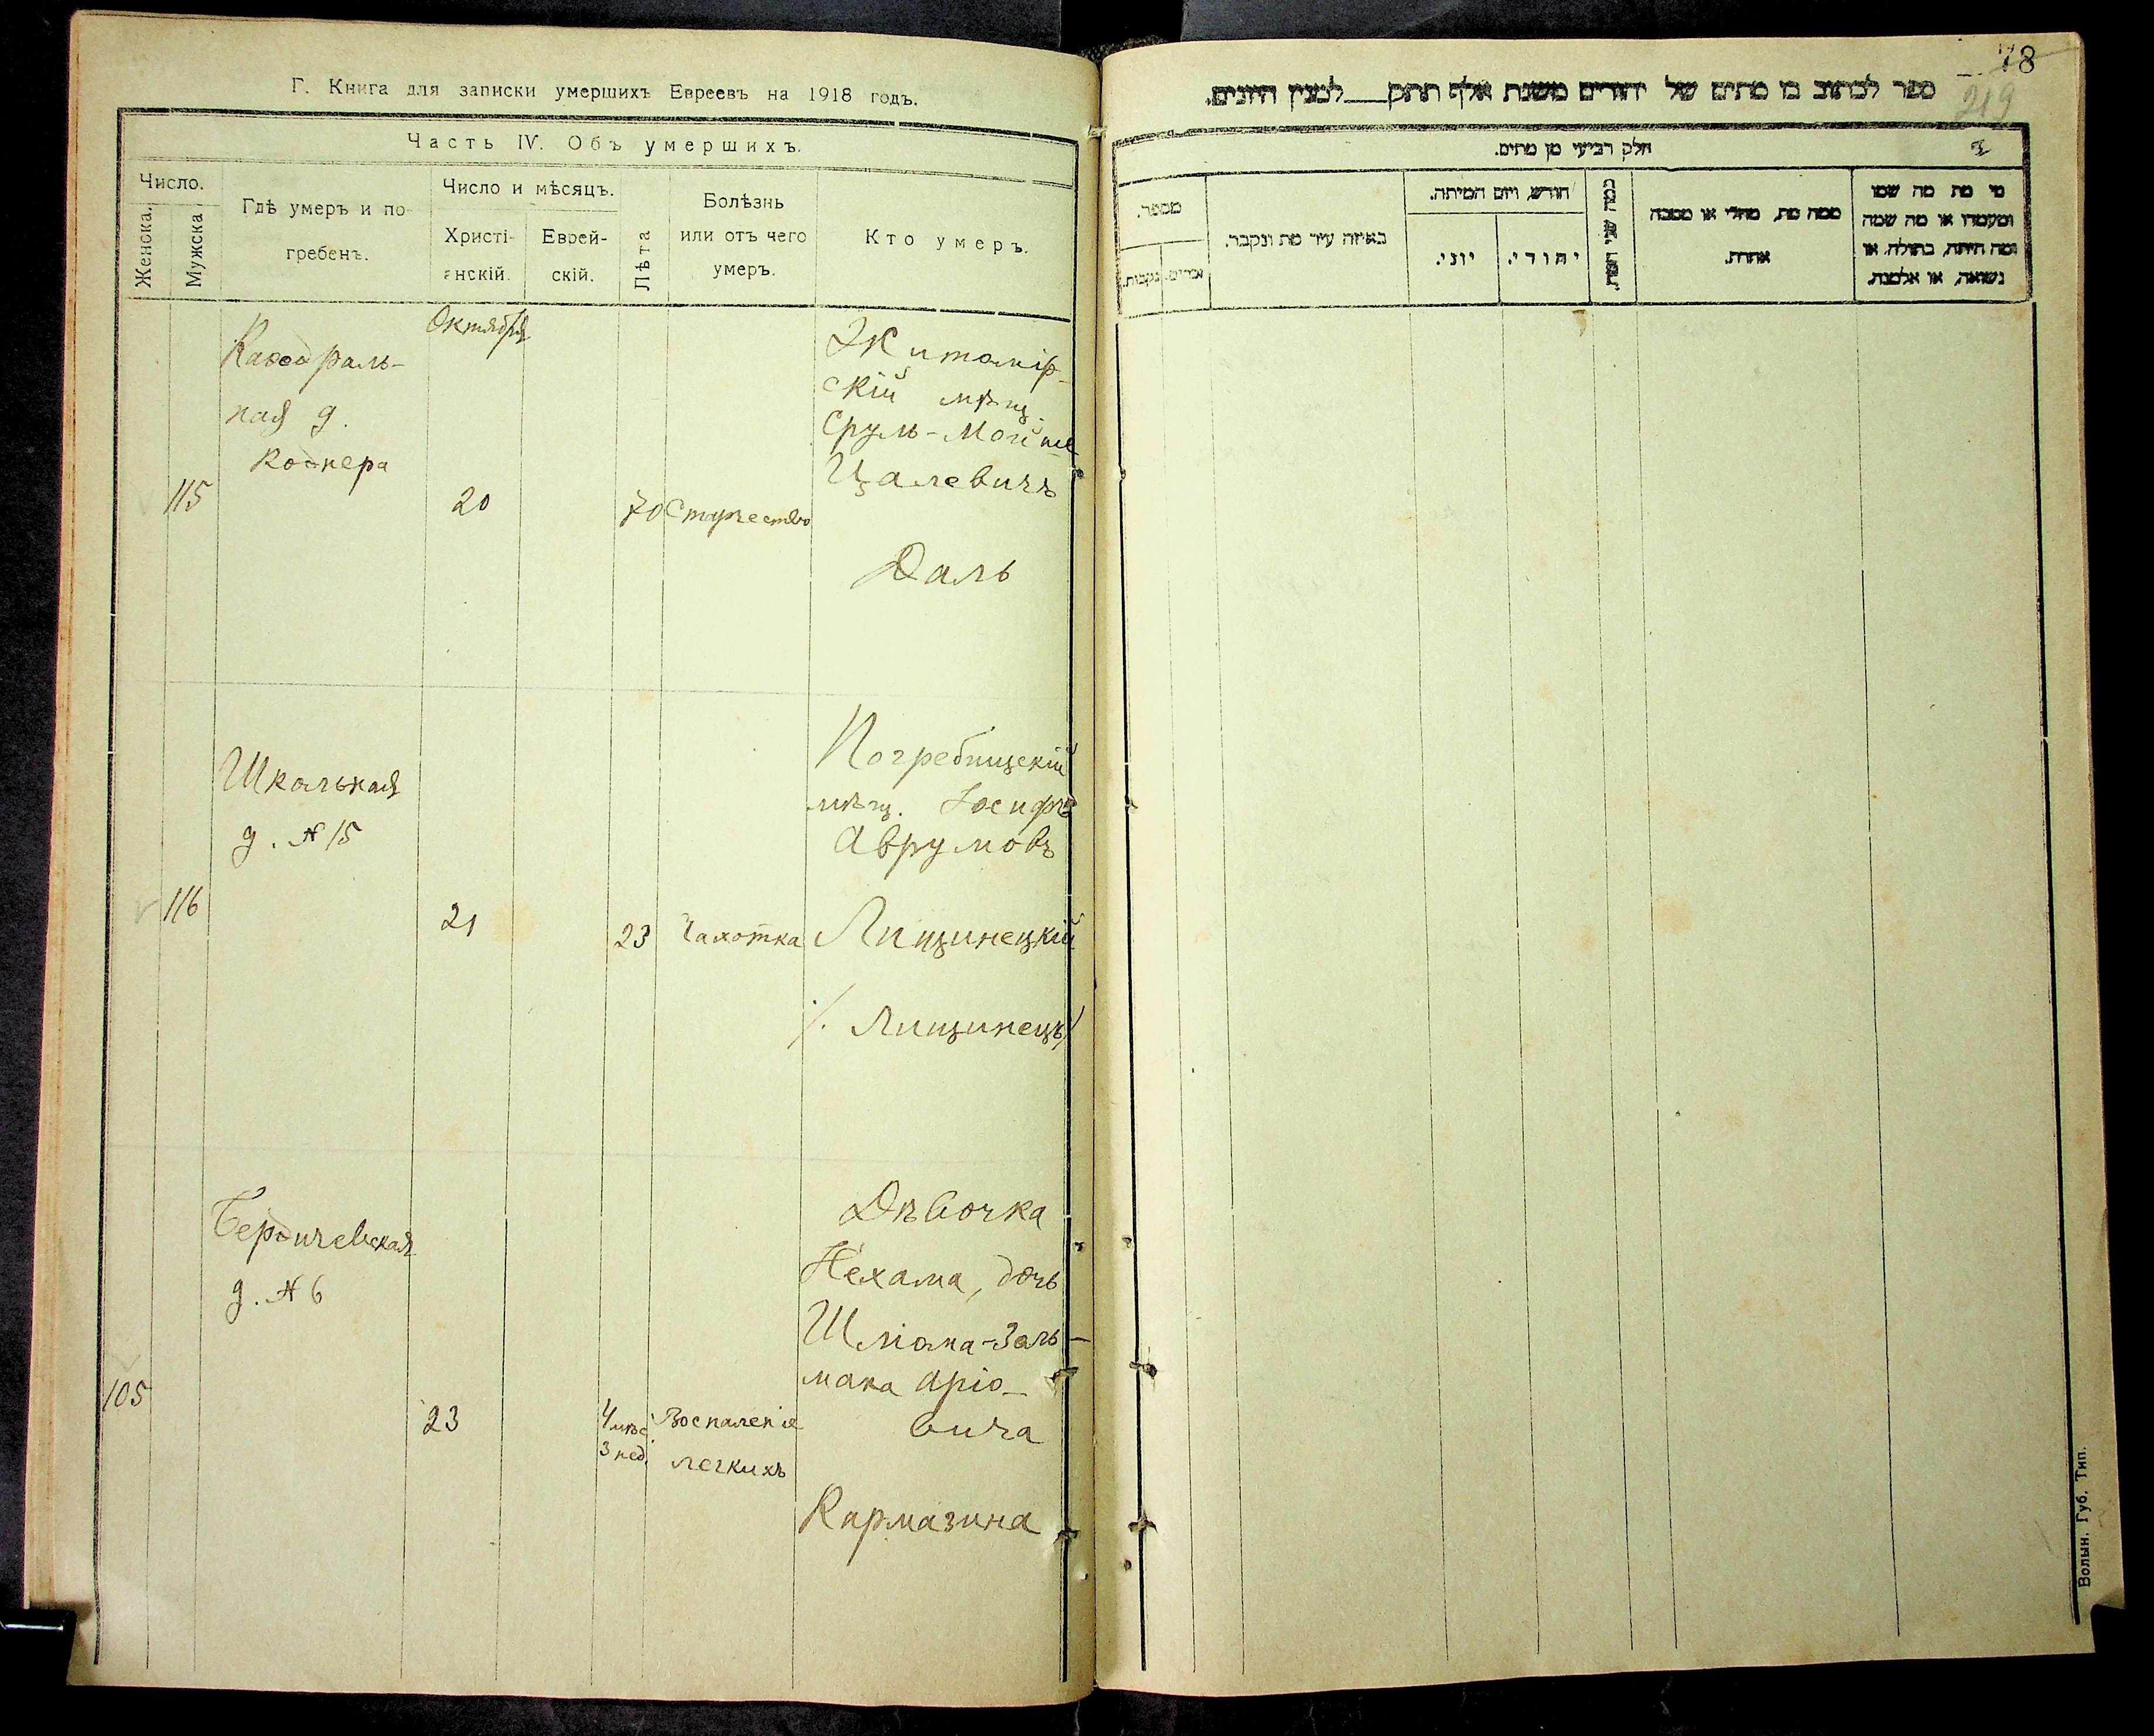 Г. Книга для записки умершихъ Евреевъ на 1918 годъ.
Часть IV. Объ умершихъ.
Число.
Женска.
Мужска
Гдѣ умеръ и по-
гребенъ.
Число и мѣсяцъ.
Христі-
анскій.
Еврей-
скій.
Лѣта
Болѣзнь
или отъ чего
умеръ.
Кто умеръ.
Октября
115
Каѳедраль-
ная д.
Коднера
20
70
Старчество
Житомір-
скій мѣщ.
Сруль-Мойше
Цалевичъ
Даль
116
Школьная
д. № 15
21
23
Чахотка
Погребищскій
мѣщ. Іосифъ
Аврумовъ
Лищинецкій
/. Лищинецъ/
105
Бердичевская
д. № 6
23
4 мѣс.
3 нед.
Воспаленіе
легкихъ
Дѣвочка
Нехама, дочь
Шліома-Заль-
мана Аріо-
вича
Кармазина
78
219
ספר לכתוב בו מתים של יהודים משנת אלף תתק___למנין היונים.
חלק רביעי מן מתים.
מספר.
נקבות.
זכרים.
באיזה עיר מת ונקבר.
חודש, ויום המיתה.
יוני.
יהודי.
כמה שני המת.
ממה מת, מחלי או מסבה
אחרת.
מי מת מה שמו
ומעמדו או מה שמה
ומה היתה, בתולה, או
נשואה, או אלמנת.
Волын. Губ. Тип.